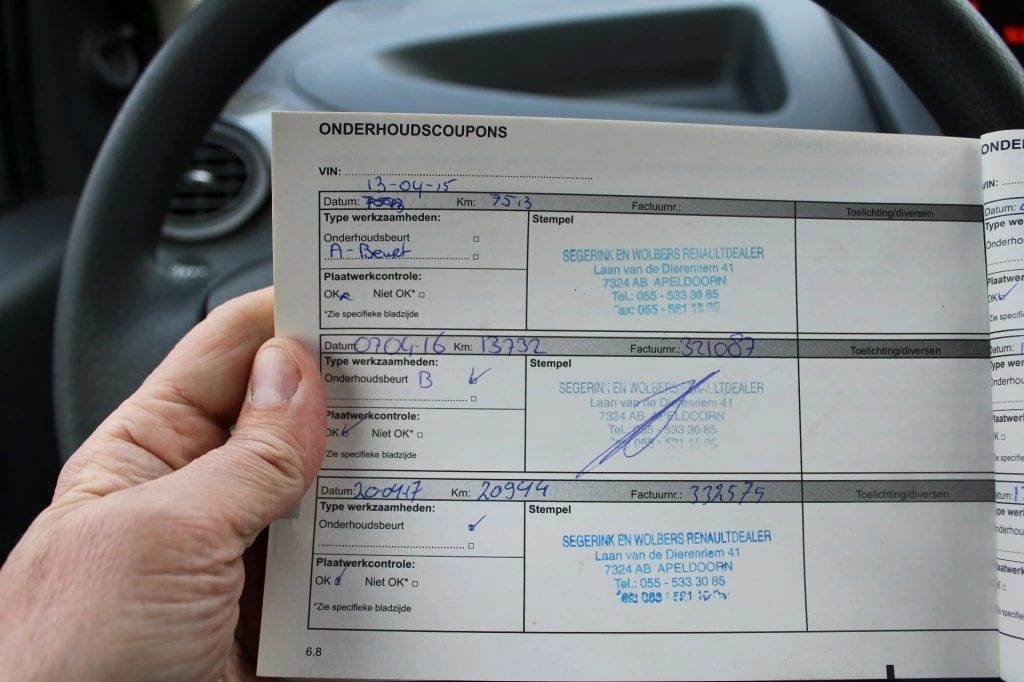 ONDERHOUDSCOUPONS
VIN:
13-04-15
Datum: Km: 7513 Factuurnr.: Toelichting/diversen
Type werkzaamheden: Stempel
Onderhoudsbeurt
A - Beurt
Plaatwerkcontrole:
OK Niet OK*
*Zie specifieke bladzijde
SEGERINK EN WOLBERS RENAULTDEALER
Laan van de Dierenriem 41
7324 AB APELDOORN
Tel.: 055 - 533 30 85
Datum: 0704-16 Km: 13732 Factuurnr.: 321087 Toelichting/diversen
Type werkzaamheden: Stempel
Onderhoudsbeurt B
Plaatwerkcontrole:
OK Niet OK*
*Zie specifieke bladzijde
SEGERINK EN WOLBERS RENAULTDEALER
Laan van de Dierenriem 41
7324 AB APELDOORN
Tel.: 055 - 533 30 85
Datum: 200417 Km: 20944 Factuurnr.: 332575 Toelichting/diversen
Type werkzaamheden: Stempel
Onderhoudsbeurt
Plaatwerkcontrole:
OK Niet OK*
*Zie specifieke bladzijde
SEGERINK EN WOLBERS RENAULTDEALER
Laan van de Dierenriem 41
7324 AB APELDOORN
Tel.: 055 - 533 30 85
6.8
ONDE
VIN:
Datum: